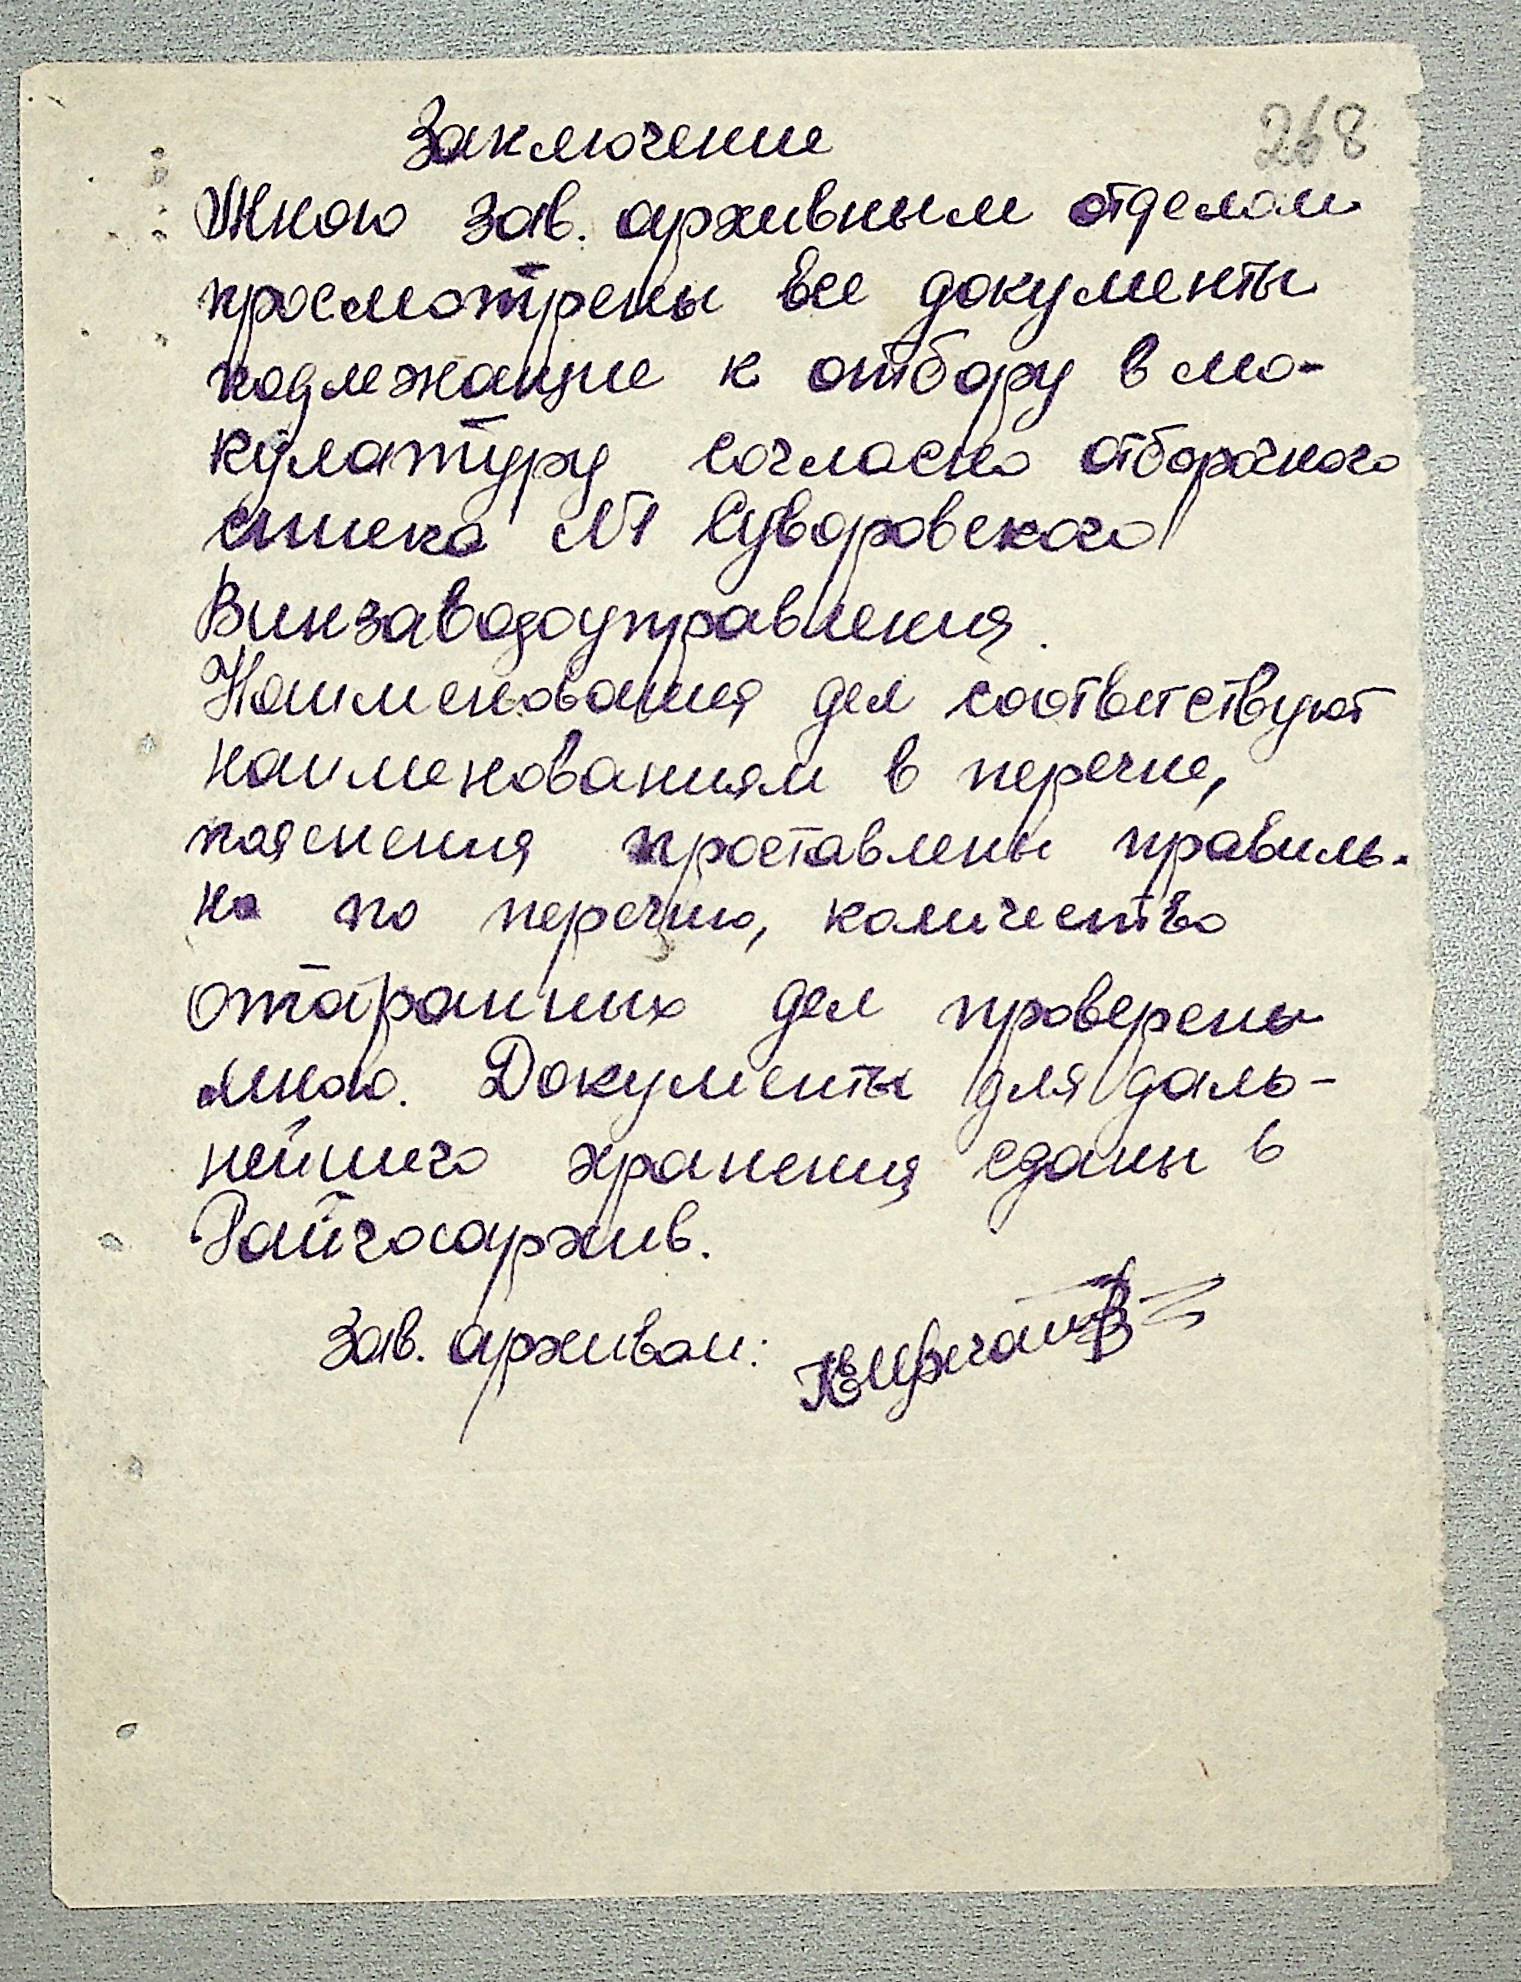 268
Заключение
Мною зав. архивным отделом
просмотрены все документы
подлежащие к отбору в мо-
кулатуру согласно отборочного
списка №1 Суворовского
Винзаводоуправления.
Наименования дел соответствуют
наименованиям в перечне,
пояснения проставлены правиль-
но по перечню, количество
отобранных дел проверены
мною. Документы для даль-
нейшего хранения сданы в
Райгосархив.
Зав. архивом: